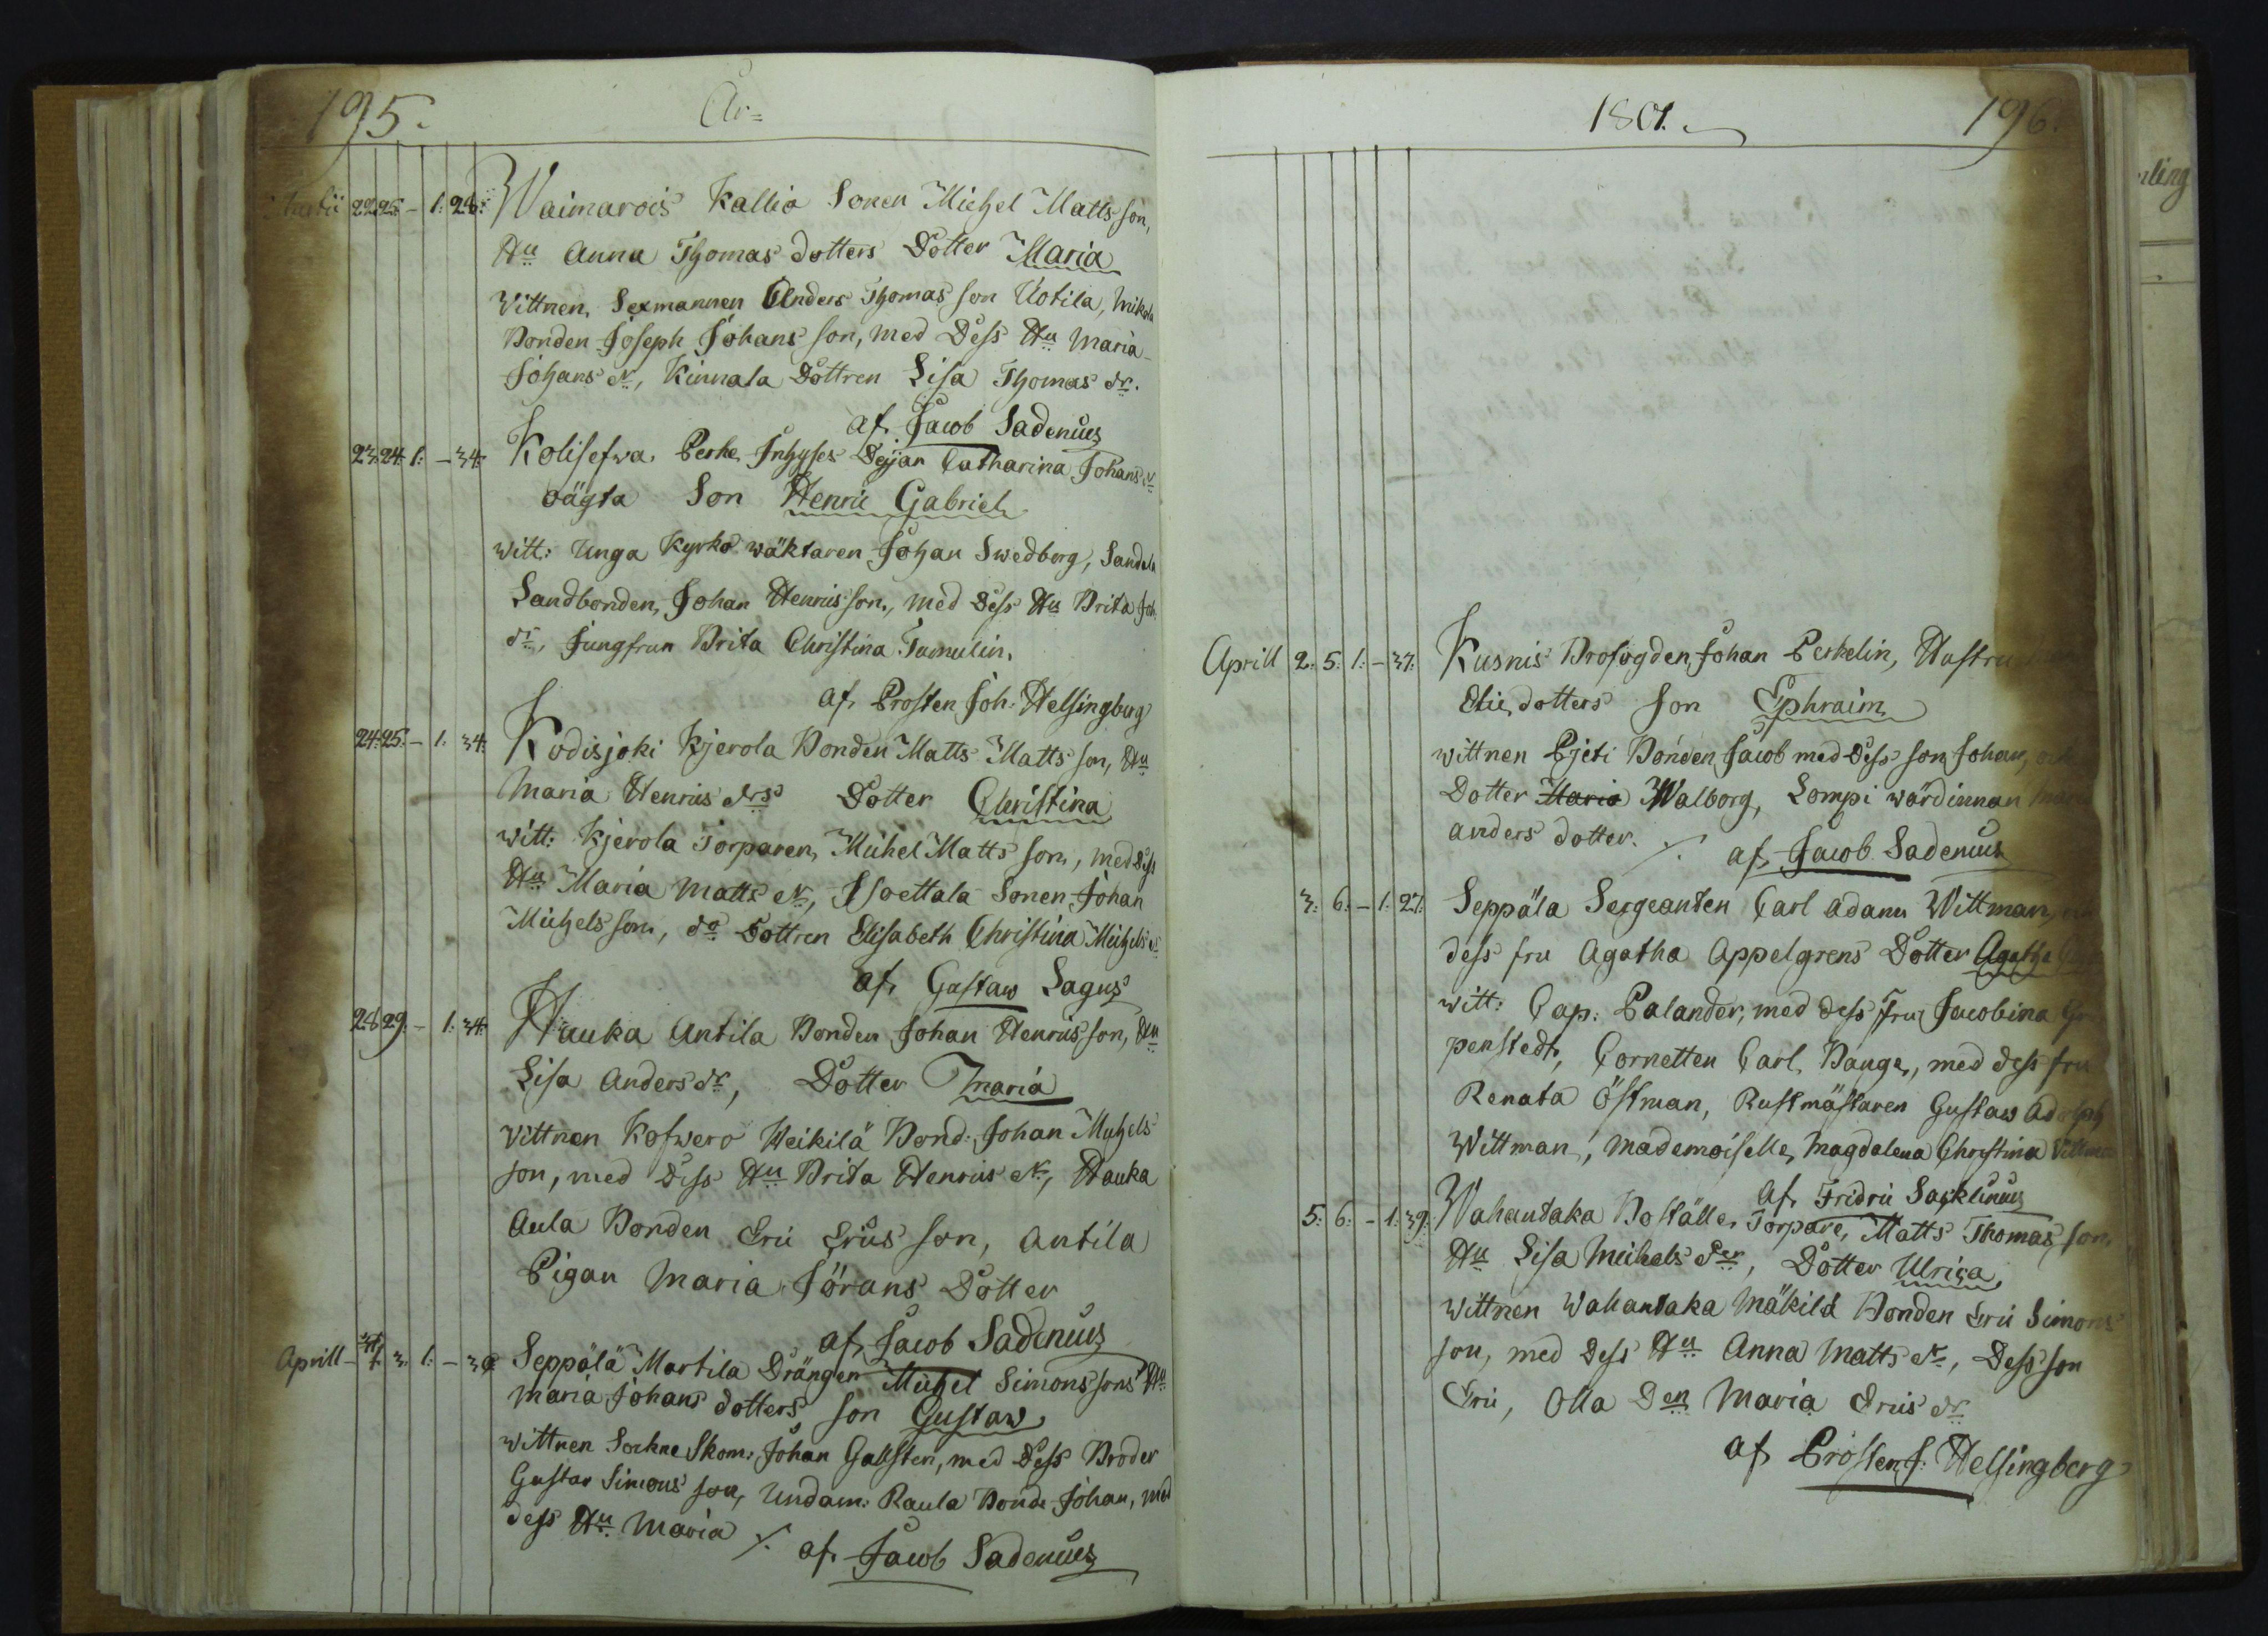 195. År=
Martii 22. 25. - 1. 28. Waimarois Kallio Sonen Michel Matts son,
Hu Anna Thomas dotters Dotter Maria
Vittnen, Sexmannen Anders Thomas son Uotila, Mikola
Bonden Joseph Johans son, med Dess Hu Maria
Johans dr, Kinnala Dottren Lisa Thomas dr.
af Jacob Sadenius
23. 24. 1. - 34. Kolisefwa Perke Inhyses Dejan Catharina Johans dr
oägta Son Henric Gabriel
witt: Unga Kyrko wäktaren Johan Swedberg, Sandela
Landbonden, Johan Henrics son, med Dess Hu Brita Joh
dr, Jungfrun Brita Christina Tamulin.
af Prosten Joh: Helsingberg
24. 25. - 1. 34. Kodisjoki Kjerola Bonden Matts Matts son, Hu
Maria Henrics drs Dotter Christina
witt: Kjerola Torparen, Michel Matts son, med Dess
Hu Maria Matts dr, Isoettala Sonen Johan
Michels son, do Dottren Elisabeth Christina Michels dr
af Gustaw Sagus
28. 29. - 1. 34. Hauka Antila Bonden Johan Henrics son, Hu
Lisa Anders dr, Dotter Maria
Vittnen Kofwero Heikilä Bond. Johan Michels
son, med Diss Hu Brita Henrics dr, Hauka
Aula Bonden Eric Erics son, Antila
Pigan Maria Jörans Dotter
af Jacob Sadenius
Aprill 3. 1. - Seppälä Martila Drängen Michel Simons sons Hu
Maria Johans dotters son Gustaw
wittnen Sockne Skom: Johan Gallsten, med Dess Broder
Gustav Simons son, Undam: Raula Bonde Johan, med
dess Hu Maria ./. af Jacob Sadenius
1801. 196.
Aprill 2. 5. 1. - 37. Kusnis Brofogden, Johan Perkelin, Hustru
Elie dotters son Ephraim
wittnen Pjeti Bonden Jacob med Dess son Johan, och
Dotter Maria Walborg, Lompi wärdinnan Maria
anders dotter. ./. af Jacob Sadenius
3. 6. - 1. 27. Seppäla Sergeanten Carl adam Wittman,
dess fru Agatha Appelgrens Dotter Agatha
witt: Cap: Palander, med dess fru Jacobina
penstedt, Cornetten Carl Bange, med dess fru
Renata Östman, Rustmästaren Gustaw Adolph
Wittman, Mademoiselle, Magdalena Christina Vittman
af Fridric Sacklinius
5. 6. - 1. 39. Wahantaka Boställe, Torpare, Matts Thomas son,
Hu Lisa Michels der, Dotter Ulrica
Wittnen Wahantaka Mäkilä Bonden Eric Simons
son, med Dess Hu Anna Matts dr, Dess son
Eric, Olla Den Maria Erics dr
af Prosten J. Helsingberg